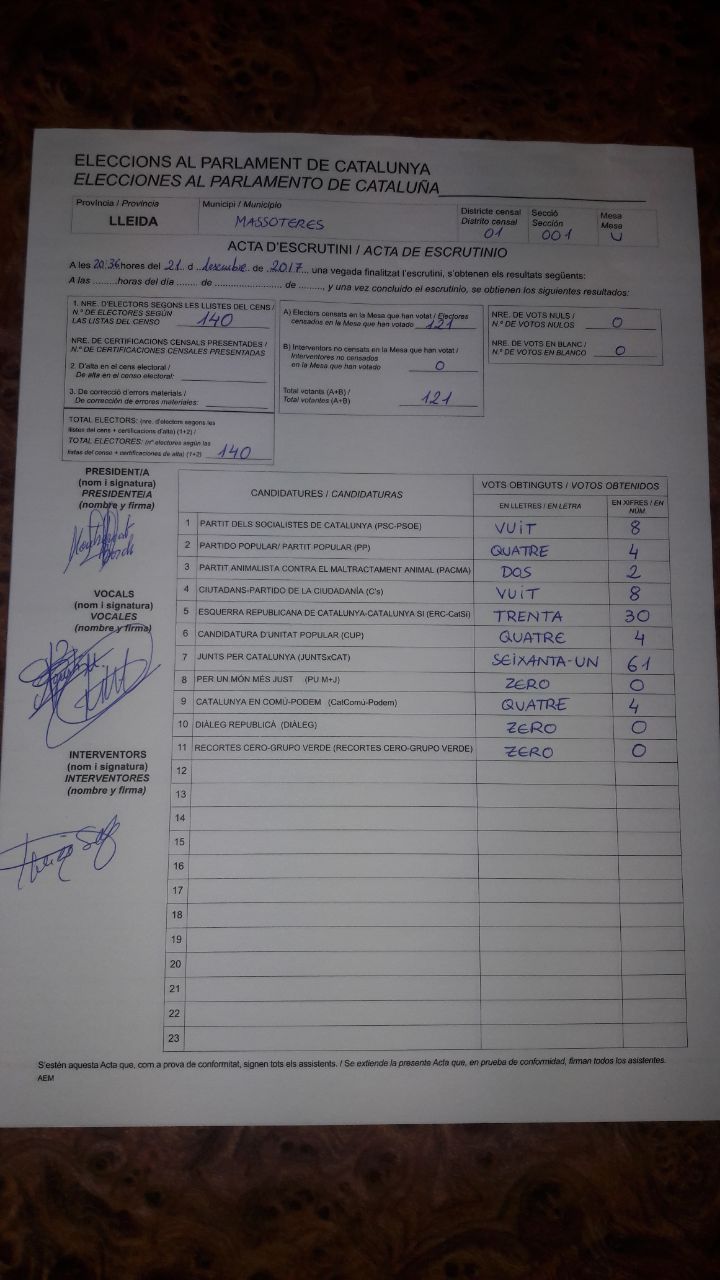 ELECCIONS AL PARLAMENT DE CATALUNYA
ELECCIONES AL PARLAMENTO DE CATALUÑA
Província / Provincia
LLEIDA
Municipi / Municipio
MASSOTERES
Districte censal
Distrito censal
01
Secció
Sección
001
Mesa
Mesa
U
ACTA D'ESCRUTINI / ACTA DE ESCRUTINIO
A les 20:36 hores del 21 d desembre de 2017 una vegada finalitzat l'escrutini, s'obtenen els resultats següents:
A las .........horas del día ....... de ..................... de ........., y una vez concluido el escrutinio, se obtienen los siguientes resultados:
1. NRE. D'ELECTORS SEGONS LES LLISTES DEL CENS /
N.º DE ELECTORES SEGÚN
LAS LISTAS DEL CENSO 140
NRE. DE CERTIFICACIONS CENSALS PRESENTADES /
N.º DE CERTIFICACIONES CENSALES PRESENTADAS
2. D'alta en el cens electoral /
De alta en el censo electoral:
3. De correcció d'errors materials /
De corrección de errores materiales:
TOTAL ELECTORS: (nre. d'electors segons les
llistes del cens + certificacions d'alta) (1+2) /
TOTAL ELECTORES: (nº electores según las
listas del censo + certificaciones de alta) (1+2) 140
A) Electors censats en la Mesa que han votat / Electores
censados en la Mesa que han votado 121
B) Interventors no censats en la Mesa que han votat /
Interventores no censados
en la Mesa que han votado 0
Total votants (A+B) /
Total votantes (A+B) 121
NRE. DE VOTS NULS /
N.º DE VOTOS NULOS 0
NRE. DE VOTS EN BLANC /
N.º DE VOTOS EN BLANCO 0
PRESIDENT/A
(nom i signatura)
PRESIDENTE/A
(nombre y firma)
VOCALS
(nom i signatura)
VOCALES
(nombre y firma)
INTERVENTORS
(nom i signatura)
INTERVENTORES
(nombre y firma)
CANDIDATURES / CANDIDATURAS
VOTS OBTINGUTS / VOTOS OBTENIDOS
EN LLETRES / EN LETRA
EN XIFRES / EN NÚM.
1 PARTIT DELS SOCIALISTES DE CATALUNYA (PSC-PSOE) VUIT 8
2 PARTIDO POPULAR/ PARTIT POPULAR (PP) QUATRE 4
3 PARTIT ANIMALISTA CONTRA EL MALTRACTAMENT ANIMAL (PACMA) DOS 2
4 CIUTADANS-PARTIDO DE LA CIUDADANÍA (C's) VUIT 8
5 ESQUERRA REPUBLICANA DE CATALUNYA-CATALUNYA SÍ (ERC-CatSí) TRENTA 30
6 CANDIDATURA D'UNITAT POPULAR (CUP) QUATRE 4
7 JUNTS PER CATALUNYA (JUNTSxCAT) SEIXANTA-UN 61
8 PER UN MÓN MÉS JUST (PU M+J) ZERO 0
9 CATALUNYA EN COMÚ-PODEM (CatComú-Podem) QUATRE 4
10 DIÀLEG REPUBLICÀ (DIÀLEG) ZERO 0
11 RECORTES CERO-GRUPO VERDE (RECORTES CERO-GRUPO VERDE) ZERO 0
12
13
14
15
16
17
18
19
20
21
22
23
S'estén aquesta Acta que, com a prova de conformitat, signen tots els assistents. / Se extiende la presente Acta que, en prueba de conformidad, firman todos los asistentes.
AEM